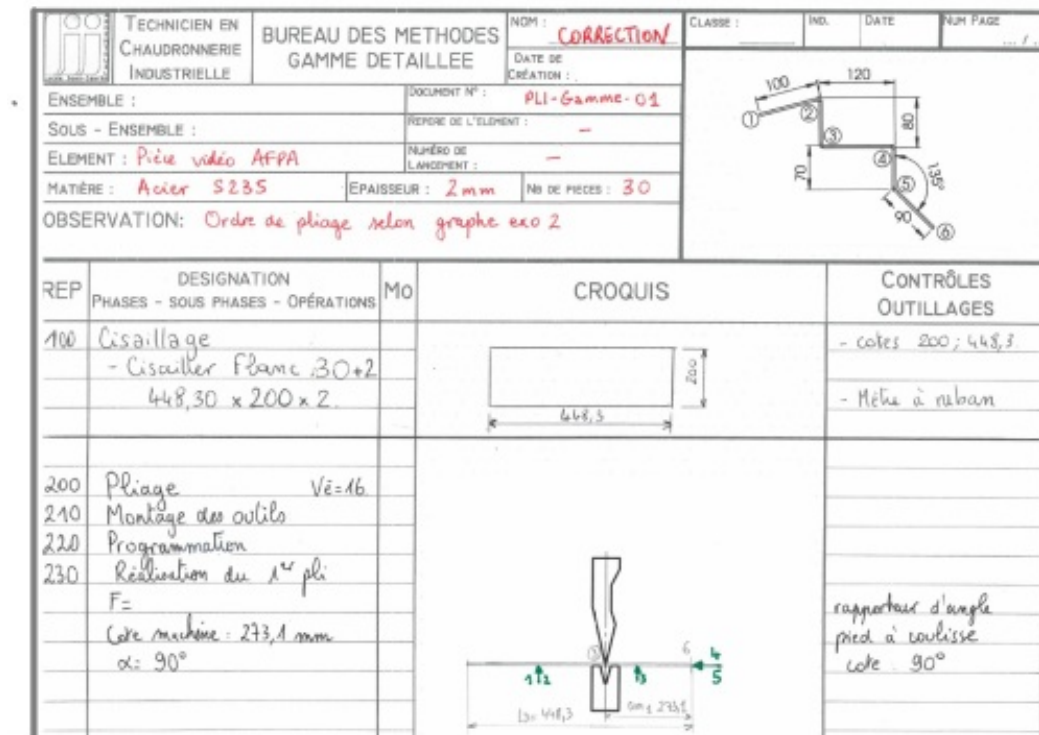 TECHNICIEN EN
CHAUDRONNERIE
INDUSTRIELLE
BUREAU DES METHODES
GAMME DETAILLEE
NOM : CORRECTION
DATE DE
CRÉATION :
CLASSE :
IND.
DATE
NUM PAGE
... / .
ENSEMBLE :
DOCUMENT N° : PLI-Gamme-01
SOUS - ENSEMBLE :
REPERE DE L'ELEMENT : -
ELEMENT : Pièce vidéo AFPA
NUMÉRO DE
LANCEMENT : -
MATIÈRE : Acier S235
EPAISSEUR : 2mm
NB DE PIECES : 30
OBSERVATION: Ordre de pliage selon graphe exo 2
100
120
①
②
80
③
④
70
135°
⑤
90
⑥
REP
DESIGNATION
PHASES - SOUS PHASES - OPÉRATIONS
MO
CROQUIS
CONTRÔLES
OUTILLAGES
100 Cisaillage
- Cisailler Flanc 30+2
448,30 x 200 x 2.
200
448,3
- cotes 200 ; 448,3.
- Mètre à ruban
200 Pliage Vé=16
210 Montage des outils
220 Programmation
230 Réalisation du 1er pli
F=
Cote machine : 273,1 mm
α: 90°
6
1 2
3
4
5
448,3
273,1
rapporteur d'angle
pied à coulisse
cote 90°